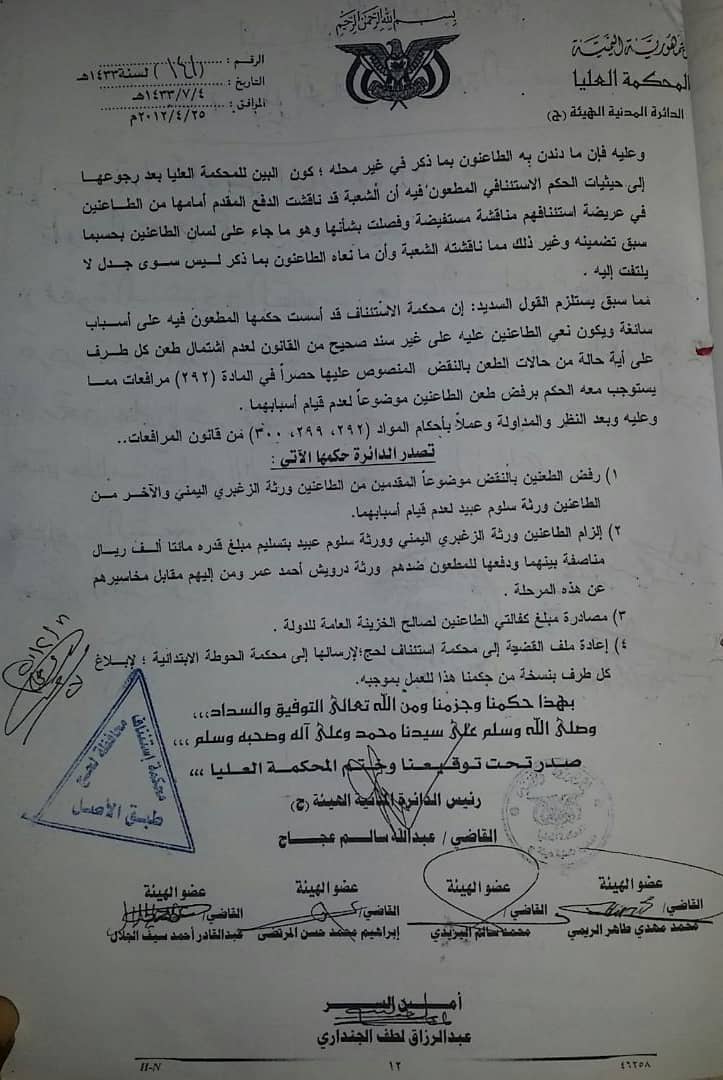 بسم الله الرحمن الرحيم
الجمهورية اليمنية
المحكمة العليا
الدائرة المدنية الهيئة (ج)
الرقم : (١٤١) لسنة ١٤٣٣هـ
التاريخ : ١٤٣٣/٧/٤هـ
الموافق : ٢٠١٢/٤/٢٥م
وعليه فإن ما دندن به الطاعنون بما ذكر في غير محله ؛ كون البين للمحكمة العليا بعد رجوعها
إلى حيثيات الحكم الاستئنافي المطعون فيه أن الشعبة قد ناقشت الدفع المقدم أمامها من الطاعنين
في عريضة استئنافهم مناقشة مستفيضة وفصلت بشأنها وهو ما جاء على لسان الطاعنين بحسبما
سبق تضمينه وغير ذلك مما ناقشته الشعبة وأن ما نعاه الطاعنون بما ذكر ليس سوى جدل لا
يلتفت إليه .
مما سبق يستلزم القول السديد: إن محكمة الاستئناف قد أسست حكمها المطعون فيه على أسباب
سائغة ويكون نعي الطاعنين عليه على غير سند صحيح من القانون لعدم اشتمال طعن كل طرف
على أية حالة من حالات الطعن بالنقض المنصوص عليها حصراً في المادة (٢٩٢) مرافعات مما
يستوجب معه الحكم برفض طعن الطاعنين موضوعاً لعدم قيام أسبابهما .
وعليه وبعد النظر والمداولة وعملاً بأحكام المواد (٢٩٢، ٢٩٩، ٣٠٠) من قانون المرافعات..
تصدر الدائرة حكمها الآتي :
١) رفض الطعنين بالنقض موضوعاً المقدمين من الطاعنين ورثة الزغبري اليمني والآخر من
الطاعنين ورثة سلوم عبيد لعدم قيام أسبابهما.
٢) إلزام الطاعنين ورثة الزغبري اليمني وورثة سلوم عبيد بتسليم مبلغ قدره مائتا ألف ريال
مناصفة بينهما ودفعها للمطعون ضدهم ورثة درويش أحمد عمر ومن إليهم مقابل مخاسيرهم
عن هذه المرحلة .
٣) مصادرة مبلغ كفالتي الطاعنين لصالح الخزينة العامة للدولة .
٤) إعادة ملف القضية إلى محكمة استئناف لحج؛لإرسالها إلى محكمة الحوطة الابتدائية ؛ لإبلاغ
كل طرف بنسخة من حكمنا هذا للعمل بموجبه.
بهذا حكمنا وجزمنا ومن الله تعالى التوفيق والسداد،،،
وصلى الله وسلم على سيدنا محمد وعلى آله وصحبه وسلم ،،،
صدر تحت توقيعنا وختم المحكمة العليا ،،،
رئيس الدائرة المدنية الهيئة (ج)
القاضي / عبدالله سالم عجاج
محكمة إستئناف
محافظة لحج
طبق الأصل
عضو الهيئة عضو الهيئة عضو الهيئة عضو الهيئة
القاضي/ القاضي/ القاضي/ القاضي/
محمد مهدي طاهر الريمي محمد سالم اليزيدي إبراهيم محمد حسن المرتضى عبدالقادر أحمد سيف الجلال
أمين السر
عبدالرزاق لطف الجنداري
H-N ١٢ ٤٦٢٥٨